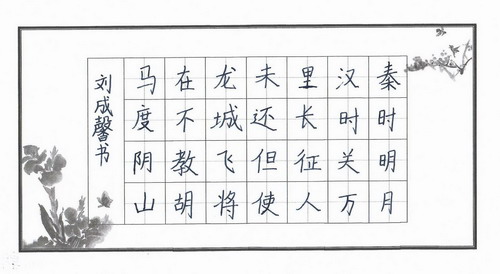 秦时明月
汉时关万
里长征人
未还但使
龙城飞将
在不教胡
马度阴山
刘成馨书